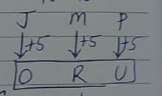 J M P
+5 +5 +5
O R U